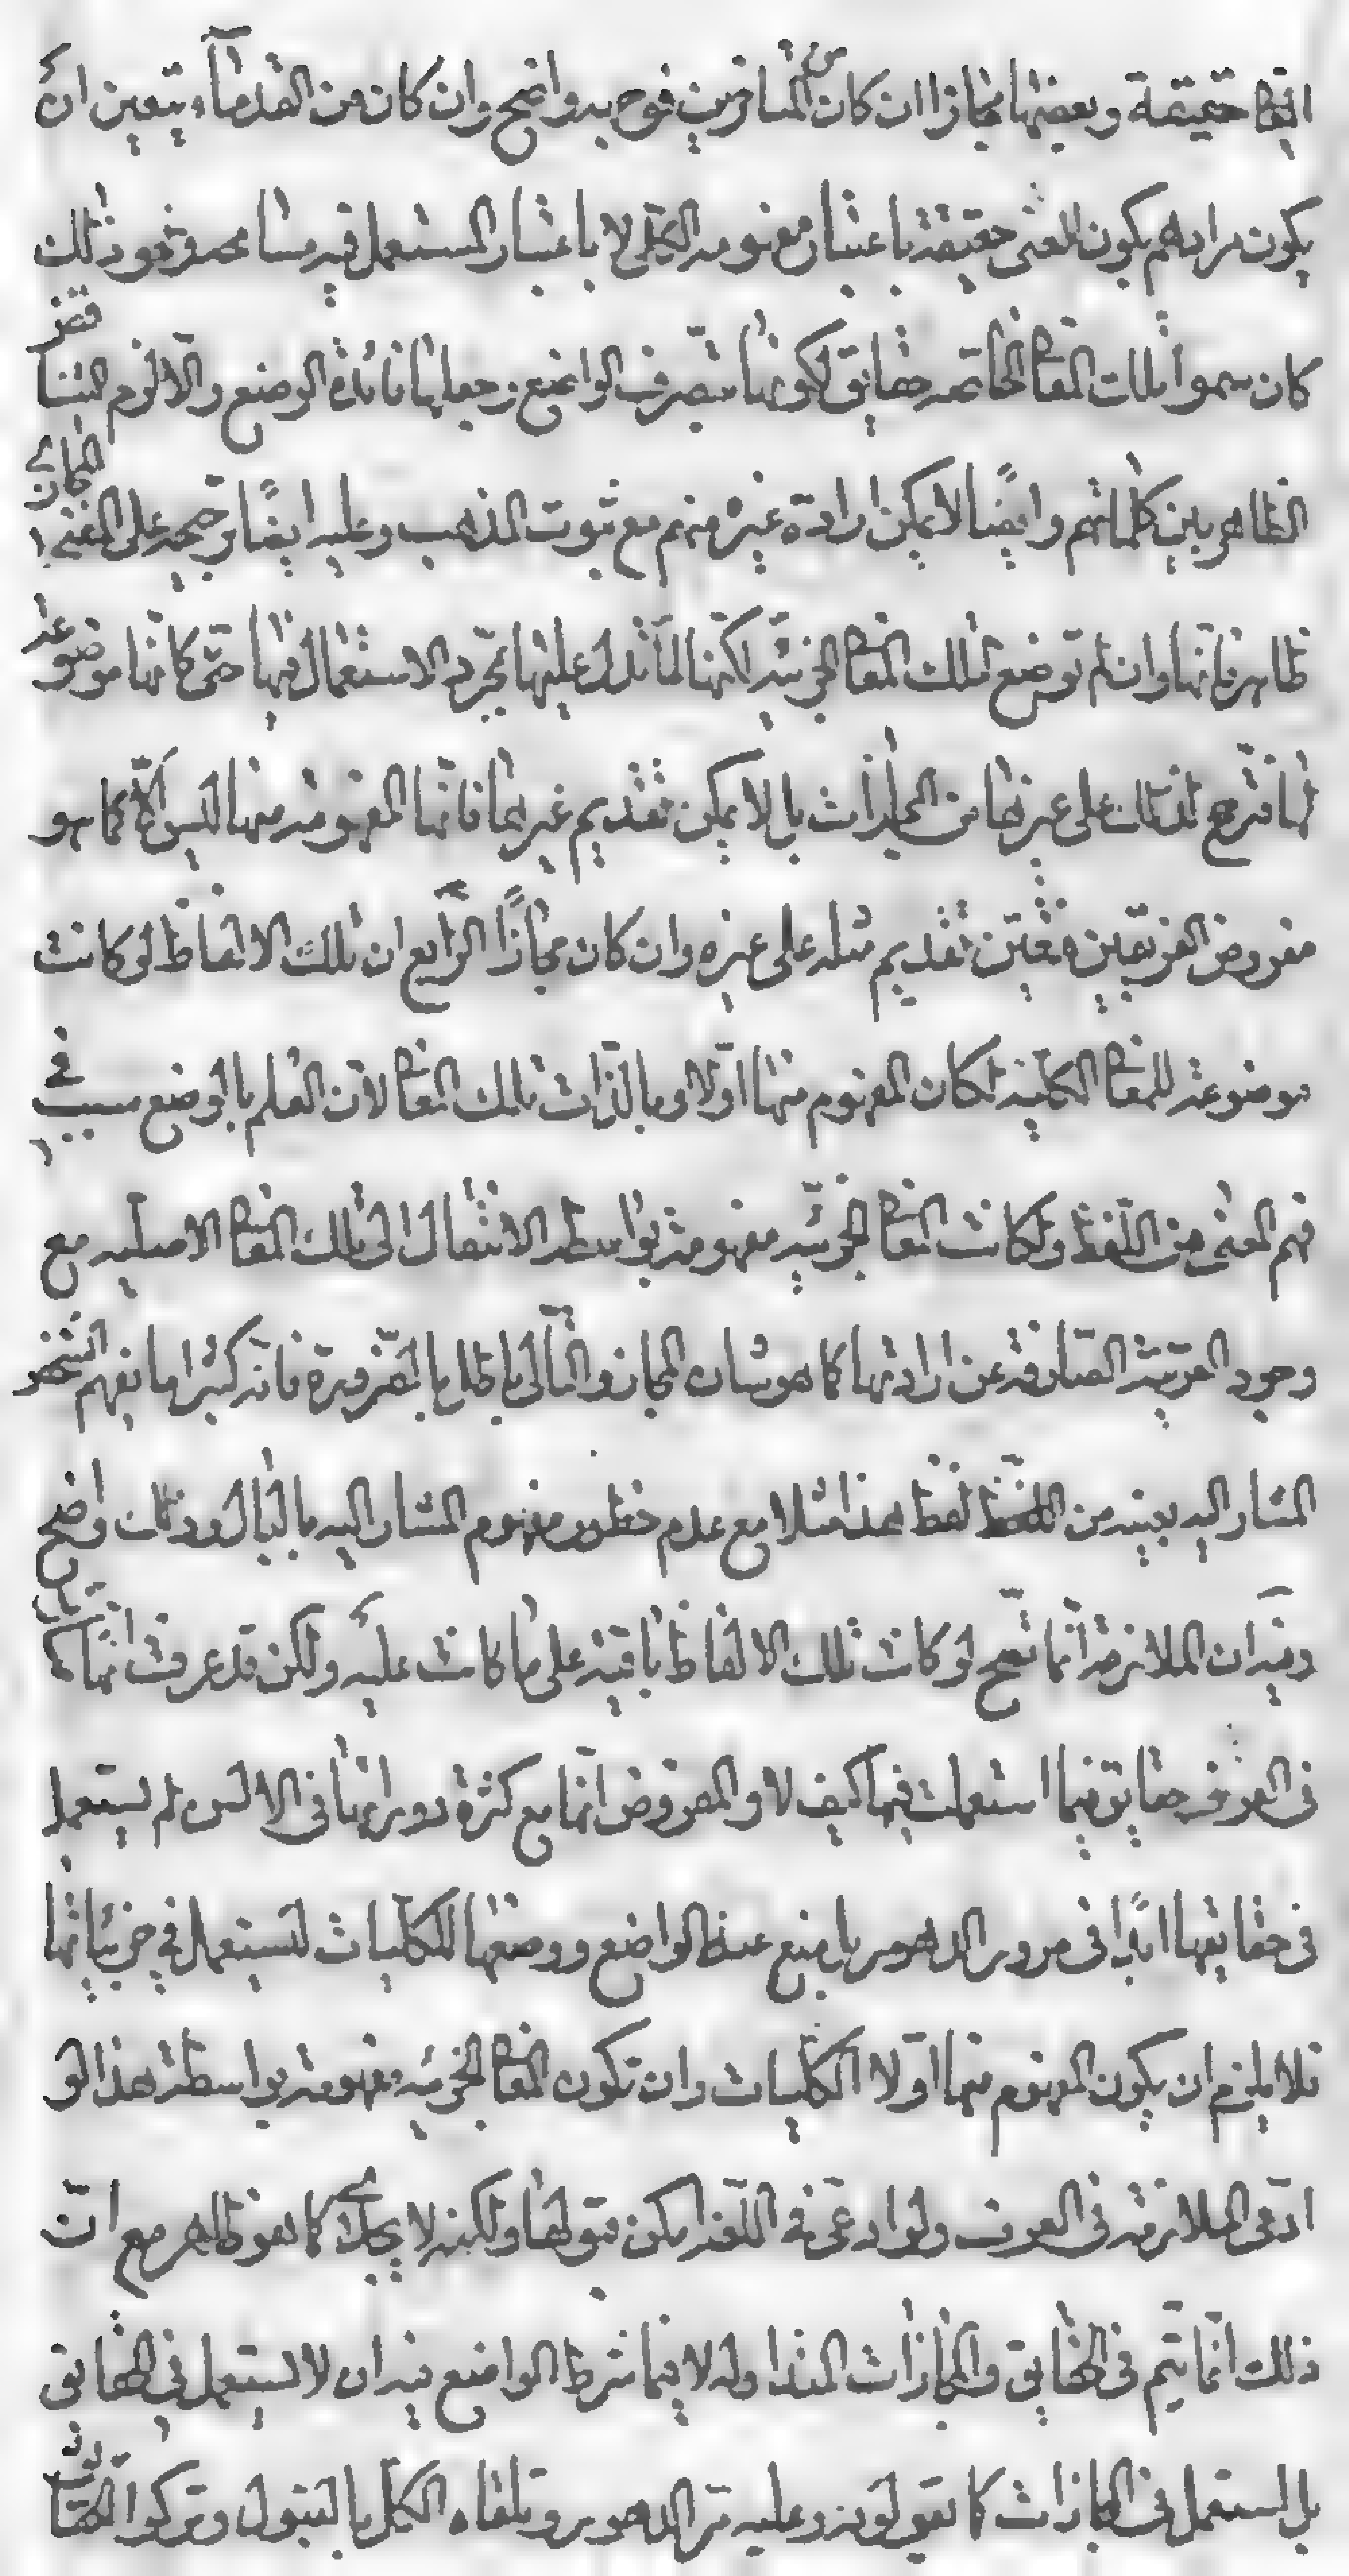 ايضا حقيقة وبعضها مجازا ان كان من المتاخرين فوجهه واضح وان كان من القدماء يتعين ان
يكون مرادهم بكون المعنى حقيقة باعتبار مفهومه الكلى لا باعتبار المستعمل فيه مسامحه ومع ذلك
كان سموا تلك المعانى الخاصه حقايق لكونها بتصرف الواضع وجعلها فائدة الوضع والا لزم التنافر
الظاهر بين كلماتهم وايضا لا يمكن ارادة غيره منهم مع ثبوت المذهب وعليه ايضا ترجيحه على المعنى المجازى
ظاهر فانها وان لم توضع لتلك المعانى الجزئيه لكنها لما تدل عليها بمجرد الاستعمال فيها حتى كانها موضوعه
لها فترجح لذلك على غيرها من المجازات بل لا يمكن تقديم غيرها فانها المفهومه منها ليس الا كما هو
مفروض الفريقين فتعين تقديم مثله على غيره وان كان مجازًا الرابع ان تلك الالفاظ لو كانت
موضوعه للمعانى الكليه لكان المفهوم منها اولا وبالذات تلك المعانى لان العلم بالوضع سبب فى
فهم المعنى من اللفظ ولكانت المعانى الجزئيه مفهومة بواسطه الانتقال الى تلك المعانى الاصليه مع
وجود القرينة الصارفه عن ارادتها كما هو شان المجاز والتالى باطل بالضرورة فانه كثيرا ما نفهم الشخص
المشار اليه بعينه من لفظ هذا مثلا مع عدم خطور مفهوم المشار اليه بالبال وذلك واضح
وفيه ان الملازمة انما تصح لو كانت تلك الالفاظ باقية على ما كانت عليه ولكن قد عرفت انها
فى العرف حقايق فيما استعملت فيها كيف لا والمفروض انها مع كثرة دورانها فى الالسن لم يستعمل
فى حقايقها ابدا فى مرور الدهور بل منع عنه الواضع ووضعها للكليات لتستعمل فى جزئياتها
فلا يلزم ان يكون المفهوم منها اولا الكليات وان تكون المعانى الجزئيه مفهومة بواسطة هذا لو
ادعى الملازمه فى العرف ولو ادعى فى اللغه امكن قبولها ولكنه لا يجديك كما هو ظاهر مع ان
ذلك انما يتم فى الحقايق والمجازات المتداوله لا فيما شرط الواضع فيه ان لا يستعمل فى الحقايق
بل استعمل فى المجازات كما تقولونه وعليه مر الدهور وتلقاه الكل بالقبول وتركوا